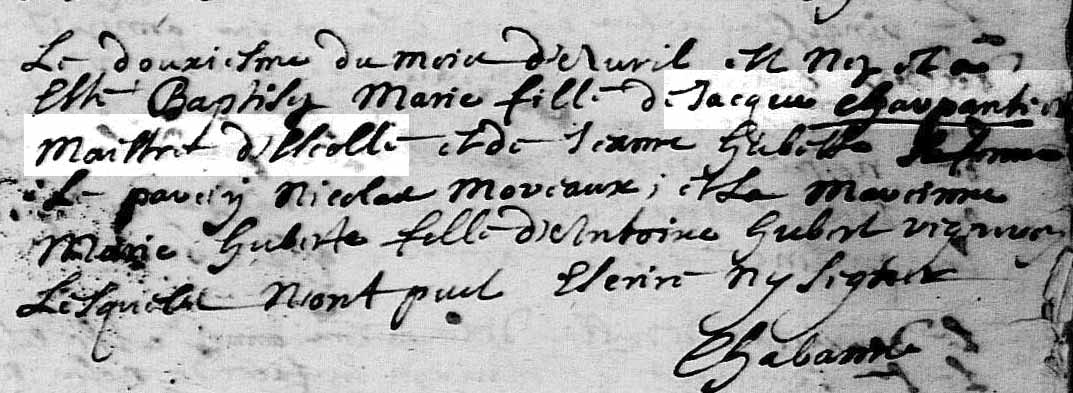 Le douxiesme du mois d'Avril est Ney et a
Esté Baptisez Marie fille de Jacque Charpantier
Maistret d'Escolle et de Jeanne Huberte sa femme
Le parein Nicolas Moreaux; et La Mareinne
Marie Huberte fille d'Antoine Hubert vigneron
Lesquels N'ont peut Escrire Ny Signer
Chabanne